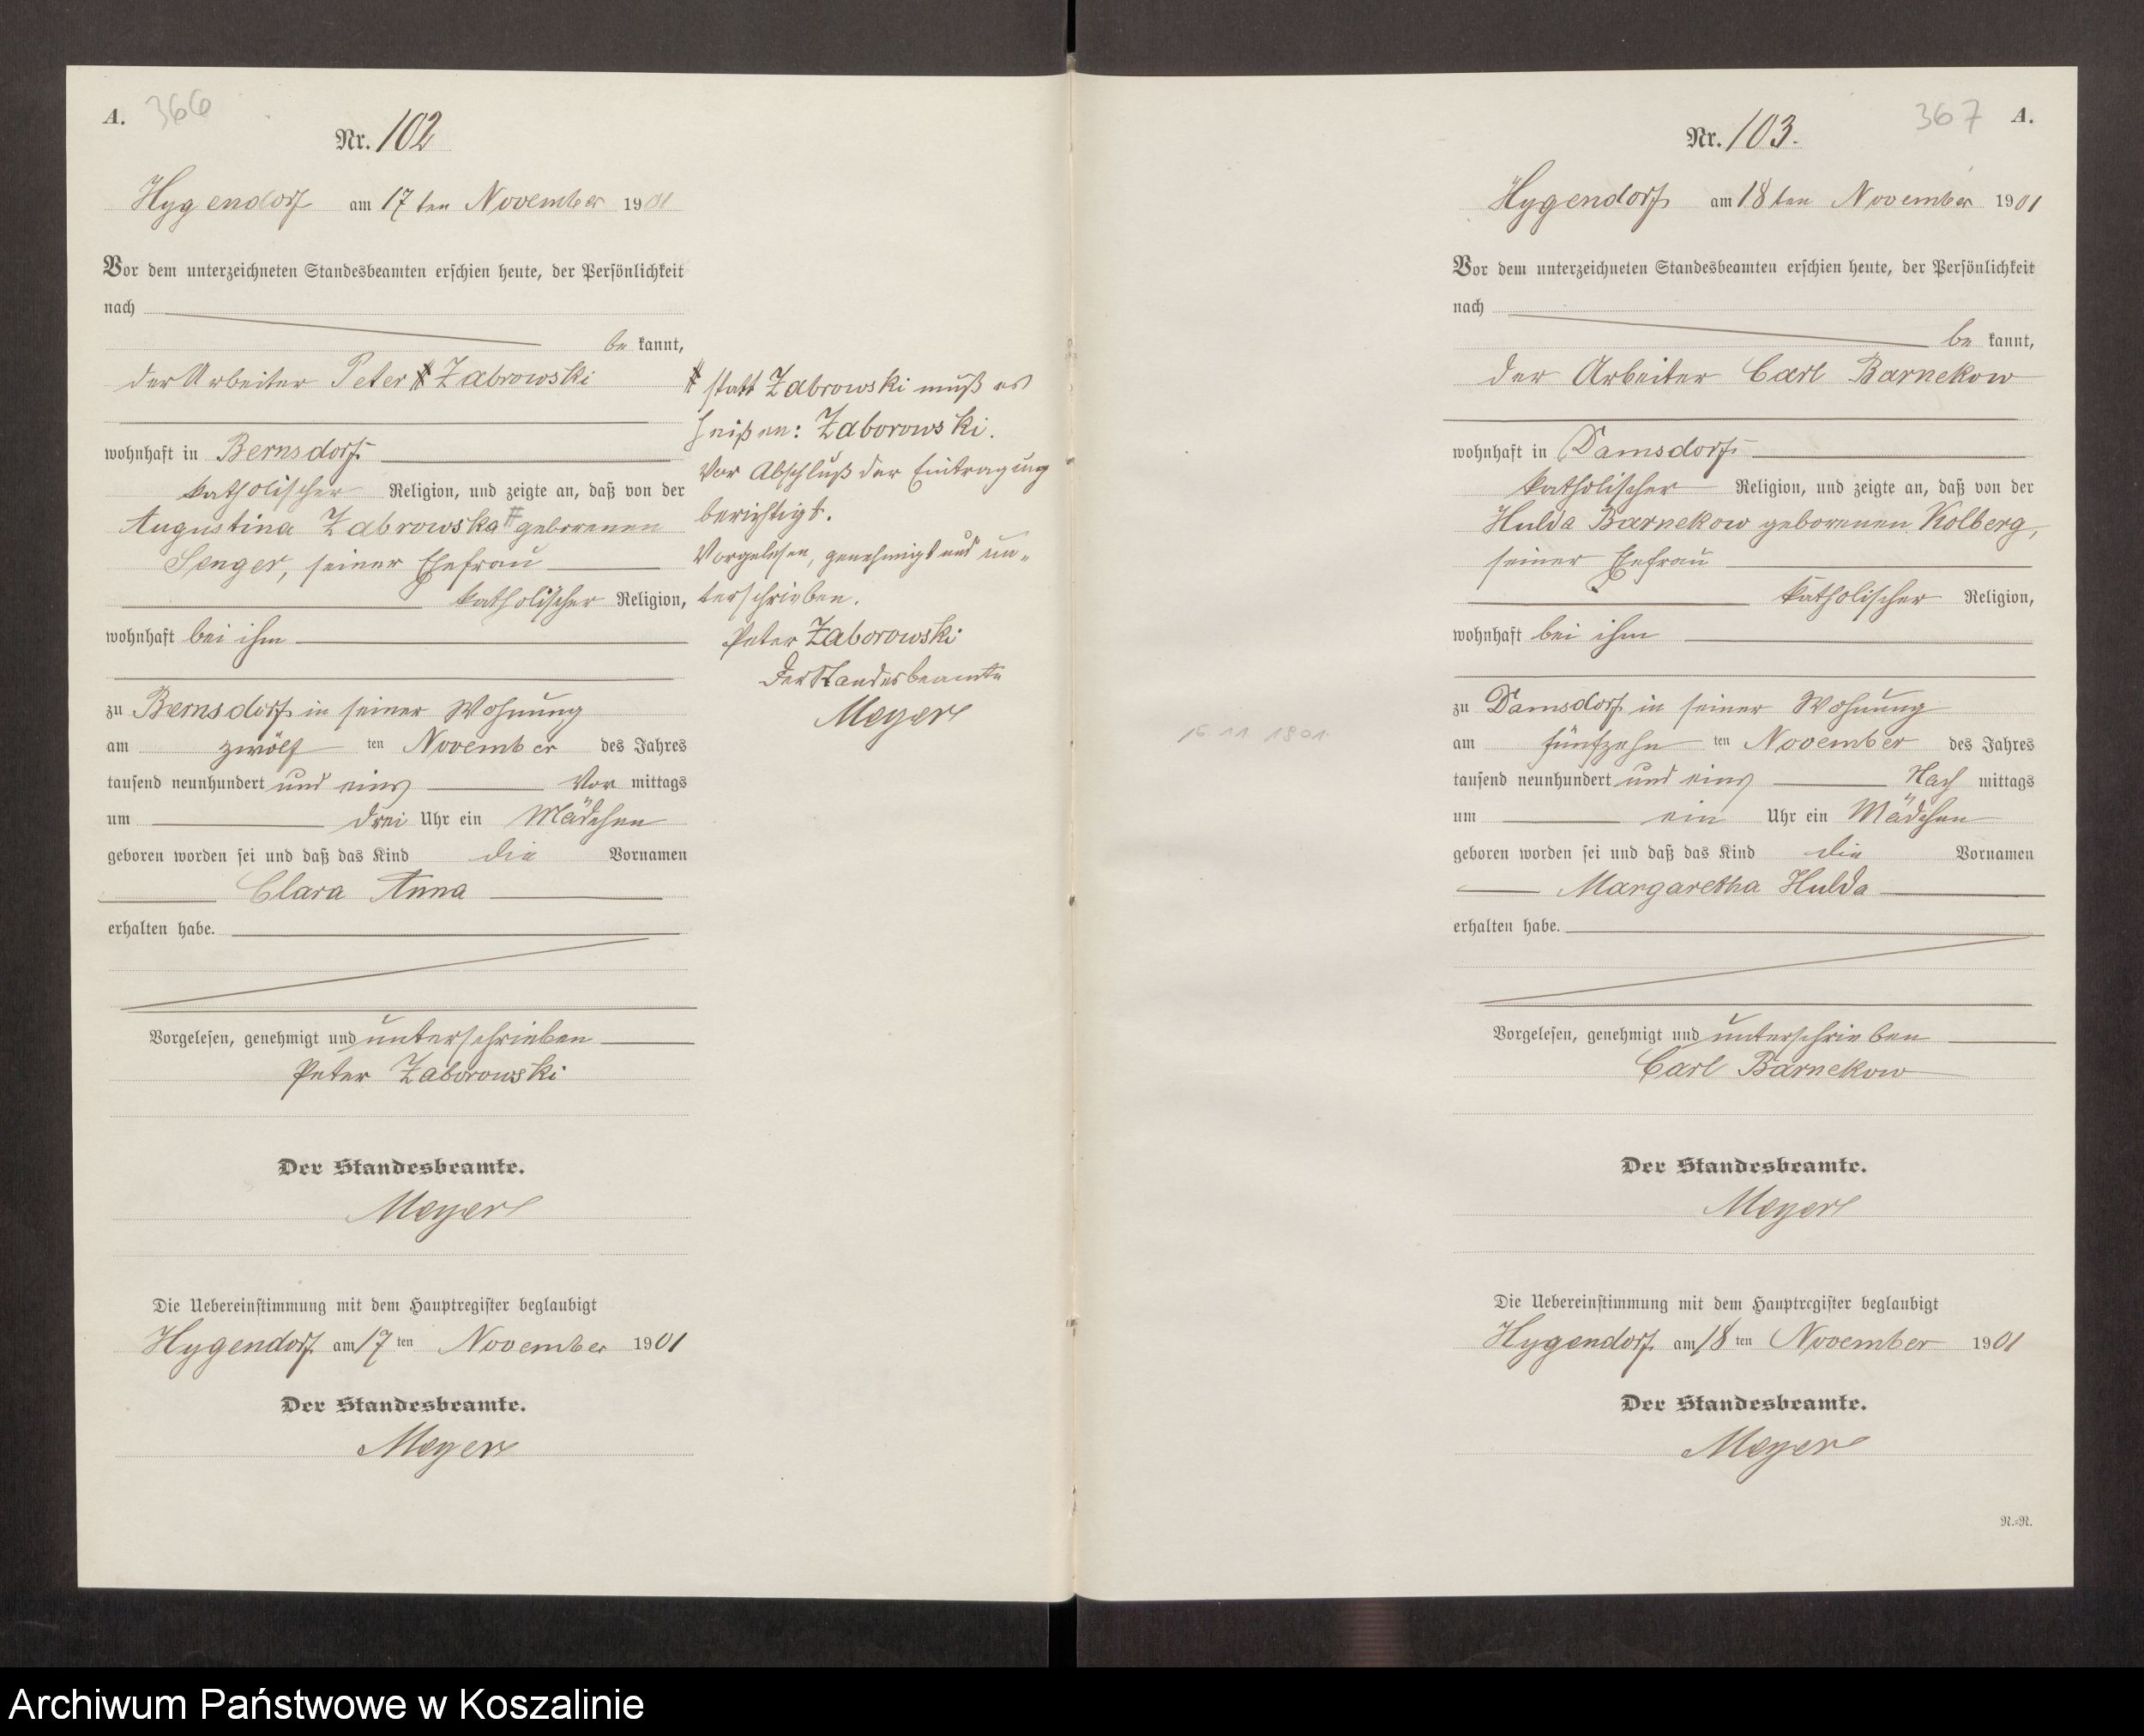 A. 366
Nr. 102
Hygendorf am 17ten November 1901
Vor dem unterzeichneten Standesbeamten erschien heute, der Persönlichkeit
nach
be kannt,
der Arbeiter Peter # Zabrowski
wohnhaft in Bernsdorf
katholischer Religion, und zeigte an, daß von der
Augustina Zabrowska # geborenen
Senger, seiner Ehefrau
katholischer Religion,
wohnhaft bei ihm
zu Bernsdorf in seiner Wohnung
am zwölf ten November des Jahres
tausend neunhundert und eins Vor mittags
um drei Uhr ein Mädchen
geboren worden sei und daß das Kind die Vornamen
Clara Anna
erhalten habe.
Vorgelesen, genehmigt und unterschrieben
Peter Zaborowski
Der Standesbeamte.
Meyer
Die Uebereinstimmung mit dem Hauptregister beglaubigt
Hygendorf am 17ten November 1901
Der Standesbeamte.
Meyer
# statt Zabrowski muß es
heißen: Zaborowski.
Vor Abschluß der Eintragung
berichtigt.
Vorgelesen, genehmigt und un-
terschrieben.
Peter Zaborowski
Der Standesbeamte
Meyer
367 A.
Nr. 103.
Hygendorf am 18ten November 1901
Vor dem unterzeichneten Standesbeamten erschien heute, der Persönlichkeit
nach
be kannt,
der Arbeiter Carl Barnekow
wohnhaft in Damsdorf
katholischer Religion, und zeigte an, daß von der
Hulda Barnekow geborenen Kolberg,
seiner Ehefrau
katholischer Religion,
wohnhaft bei ihm
zu Damsdorf in seiner Wohnung
15.11.1901
am fünfzehn ten November des Jahres
tausend neunhundert und eins Nach mittags
um ein Uhr ein Mädchen
geboren worden sei und daß das Kind die Vornamen
Margaretha Hulda
erhalten habe.
Vorgelesen, genehmigt und unterschrieben
Carl Barnekow
Der Standesbeamte.
Meyer
Die Uebereinstimmung mit dem Hauptregister beglaubigt
Hygendorf am 18ten November 1901
Der Standesbeamte.
Meyer
N.=N.
Archiwum Państwowe w Koszalinie